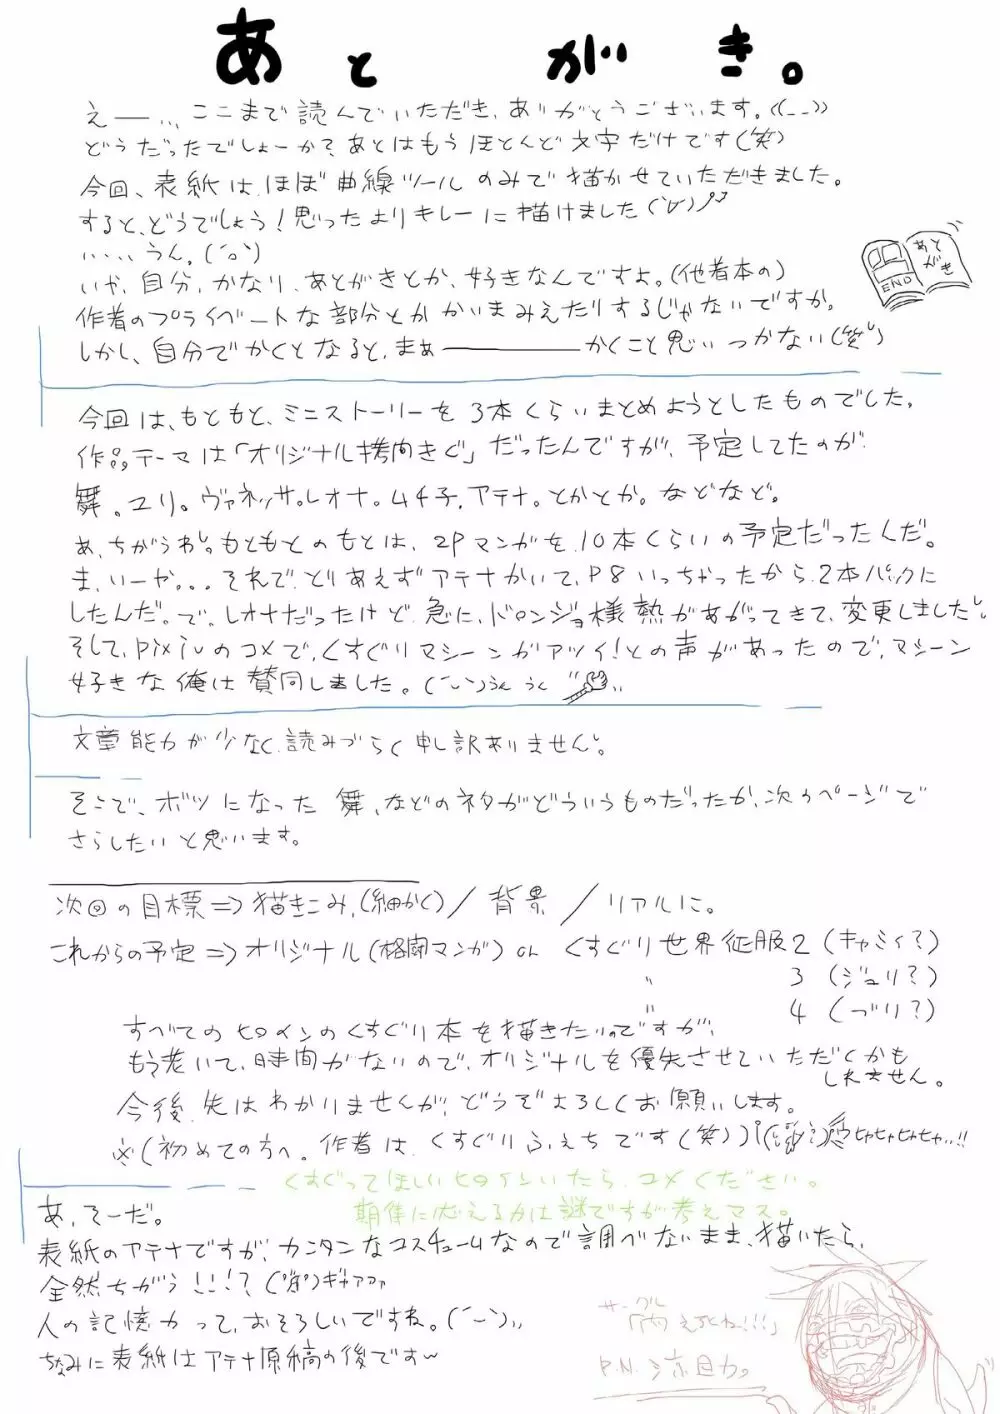 あとがき。
えー…ここまで読んでいただき、ありがとうございます。((_ _))
どうだったでしょーか?あとはもうほとんど文字だけです(笑)
今回、表紙は、ほぼ曲線ツールのみで描かせていただきました。
すると、どうでしょう!思ったよりキレーに描けました(´∀`)ノ
……うん。(´o`)
いや、自分、かなり、あとがきとか、好きなんですよ。(他者本の)
作者のプライベートな部分とかかいまみえたりするじゃないですか。
しかし、自分でかくとなると、まぁ――――かくこと思いつかない(笑)
あと
がき
END
今回は、もともと、ミニストーリーを3本くらいまとめようとしたものでした。
作品テーマは「オリジナル拷問きぐ」だったんですが、予定してたのが
舞。ユリ。ヴァネッサ。レオナ。ムチ子。アテナ。とかとか。などなど。
あ、ちがうわ。もともとのもとは、2Pマンガを10本くらいの予定だったんだ。
ま、いーや。。。それで、とりあえずアテナかいて、P8いっちゃったから、2本パックに
したんだ。で。レオナだったけど、急に、ドロンジョ様熱があがってきて、変更しました。
そして、pixivのコメで、くすぐりマシーンがアツイ!との声があったので、マシーン
好きな俺は賛同しました。(´ー`)うんうん
文章能力が少なく、読みづらく申し訳ありません。
そこで、ボツになった舞、などのネタがどういうものだったか、次のページで
さらしたいと思います。
次回の目標⇒描きこみ、(細かく)/背景/リアルに。
これからの予定⇒オリジナル(格闘マンガ)or くすぐり世界征服2(キャミィ?)
〃 3(ジュリ?)
〃 4(づり?)
すべてのヒロインのくすぐり本を描きたいのですが、
もう老いて、時間がないので、オリジナルを優先させていただくかも
しれません。
今後、先はわかりませんが、どうぞよろしくお願いします。
※(初めての方へ。作者は、くすぐりふぇちです(笑))
くすぐってほしいヒロインいたら、コメください。
期待に応えるかは謎ですが考えマス。
あ、そーだ。
表紙のアテナですが、カンタンなコスチュームなので調べないまま、描いたら、
全然ちがう!!!?(゜Д゜)ギャアアア
人の記憶力って、おそろしいですね。(´ー`)
ちなみに表紙はアテナ原稿の後です〜
サークル
P.N.